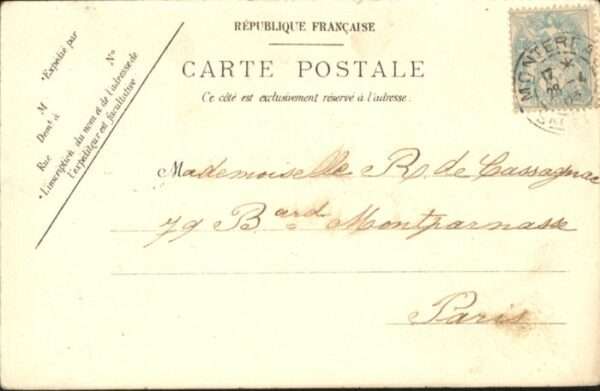 RÉPUBLIQUE FRANÇAISE
CARTE POSTALE
Ce côté est exclusivement réservé à l'adresse.
*Expédié par
M
Demt à
Rue
No
*L'inscription du nom et de l'adresse de
l'expéditeur est facultative
MONTERE
Mademoiselle R. de Cassagnac
79 Bard Montparnasse
Paris